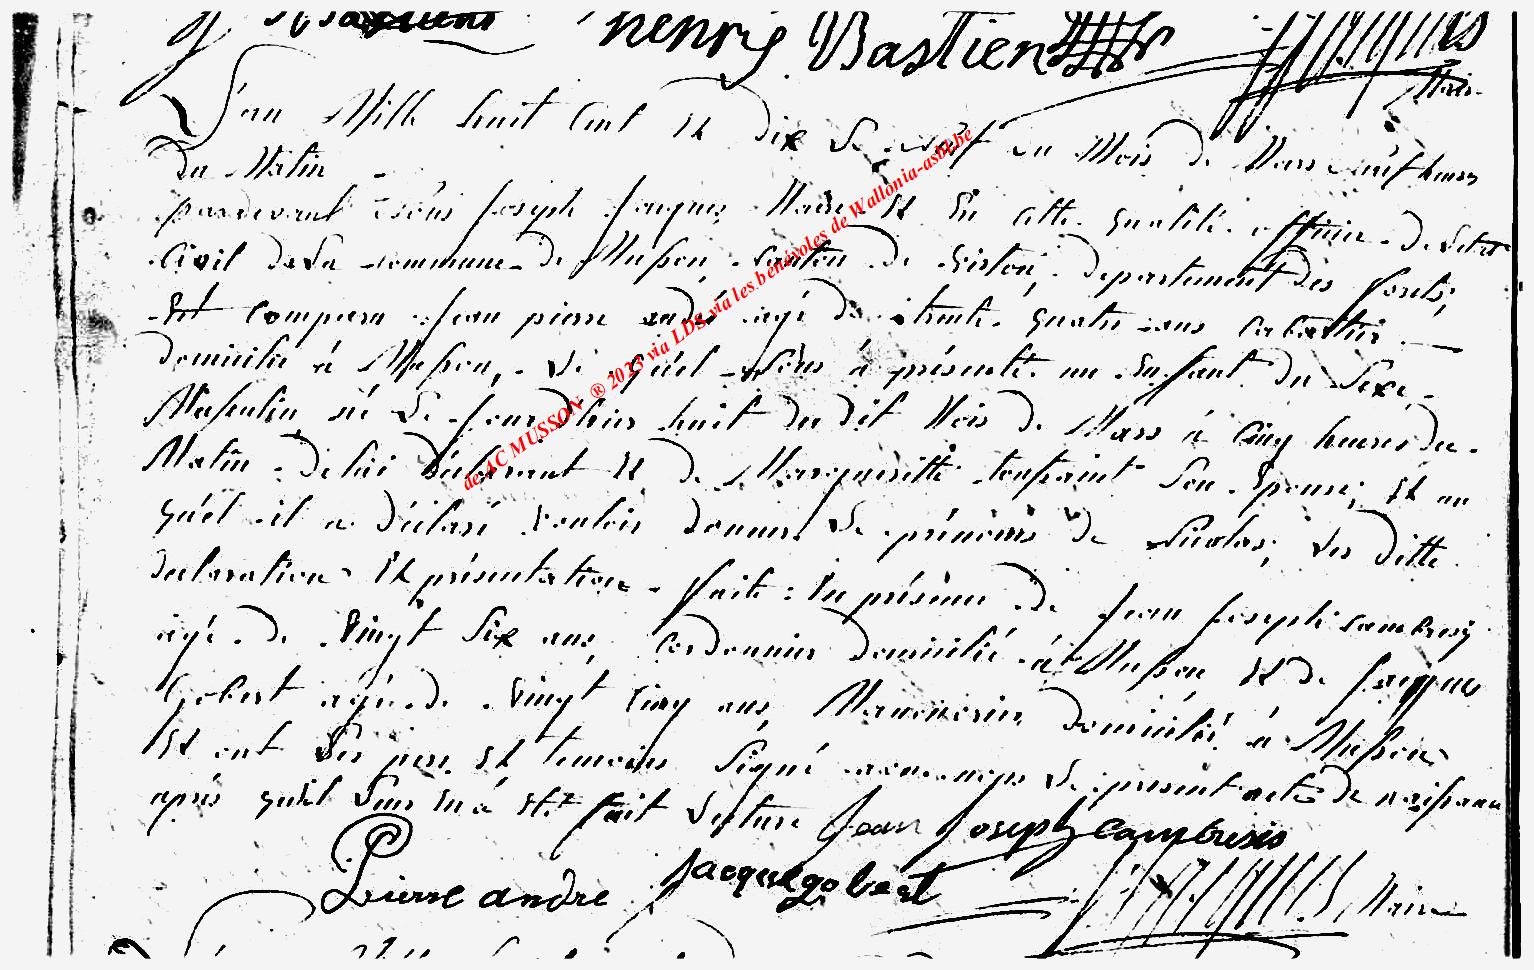 henry Bastien
Maire
L'an Mille huit Cent Et dix Le neuf du Mois de Mars neuf heures
du Matin
pardevant Nous Joseph Jacques Maire Et En cette qualité officier de L'etat
Civil de La commune de Musson, Canton de Virton, departement des forets,
Est Comparu Jean pierre andré agé de trente quatre ans Cabartier
domicilié à Musson, Le quel Nous à présenté un Enfant du Sexe
Masculin né Le Jour d'hier huit du dit Mois de Mars à Cinq heures du
Matin de lui déclarant Et de Margueritte toussaint Son Epouse, Et au
quel il a déclaré vouloir donner Le prénoms de Nicolas, Les ditte
declaration Et présentation faite : En présence de Jean Joseph Cambresy
agé de vingt Six ans, Cordonnier domicilié à Musson Et de Jacques
Gobert agé de vingt Cinq ans, Manoeuvrier domicilié à Musson
Et ont Les pere Et temoins Signé avec nous Le present acte de naissance
après quil Leur En à Eté fait Lecture Jean Joseph Cambresis
Pierre andre Jacque gobert Maire
de AC MUSSON ® 2023 via LDS via les bénévoles de Wallonia-asbl.be